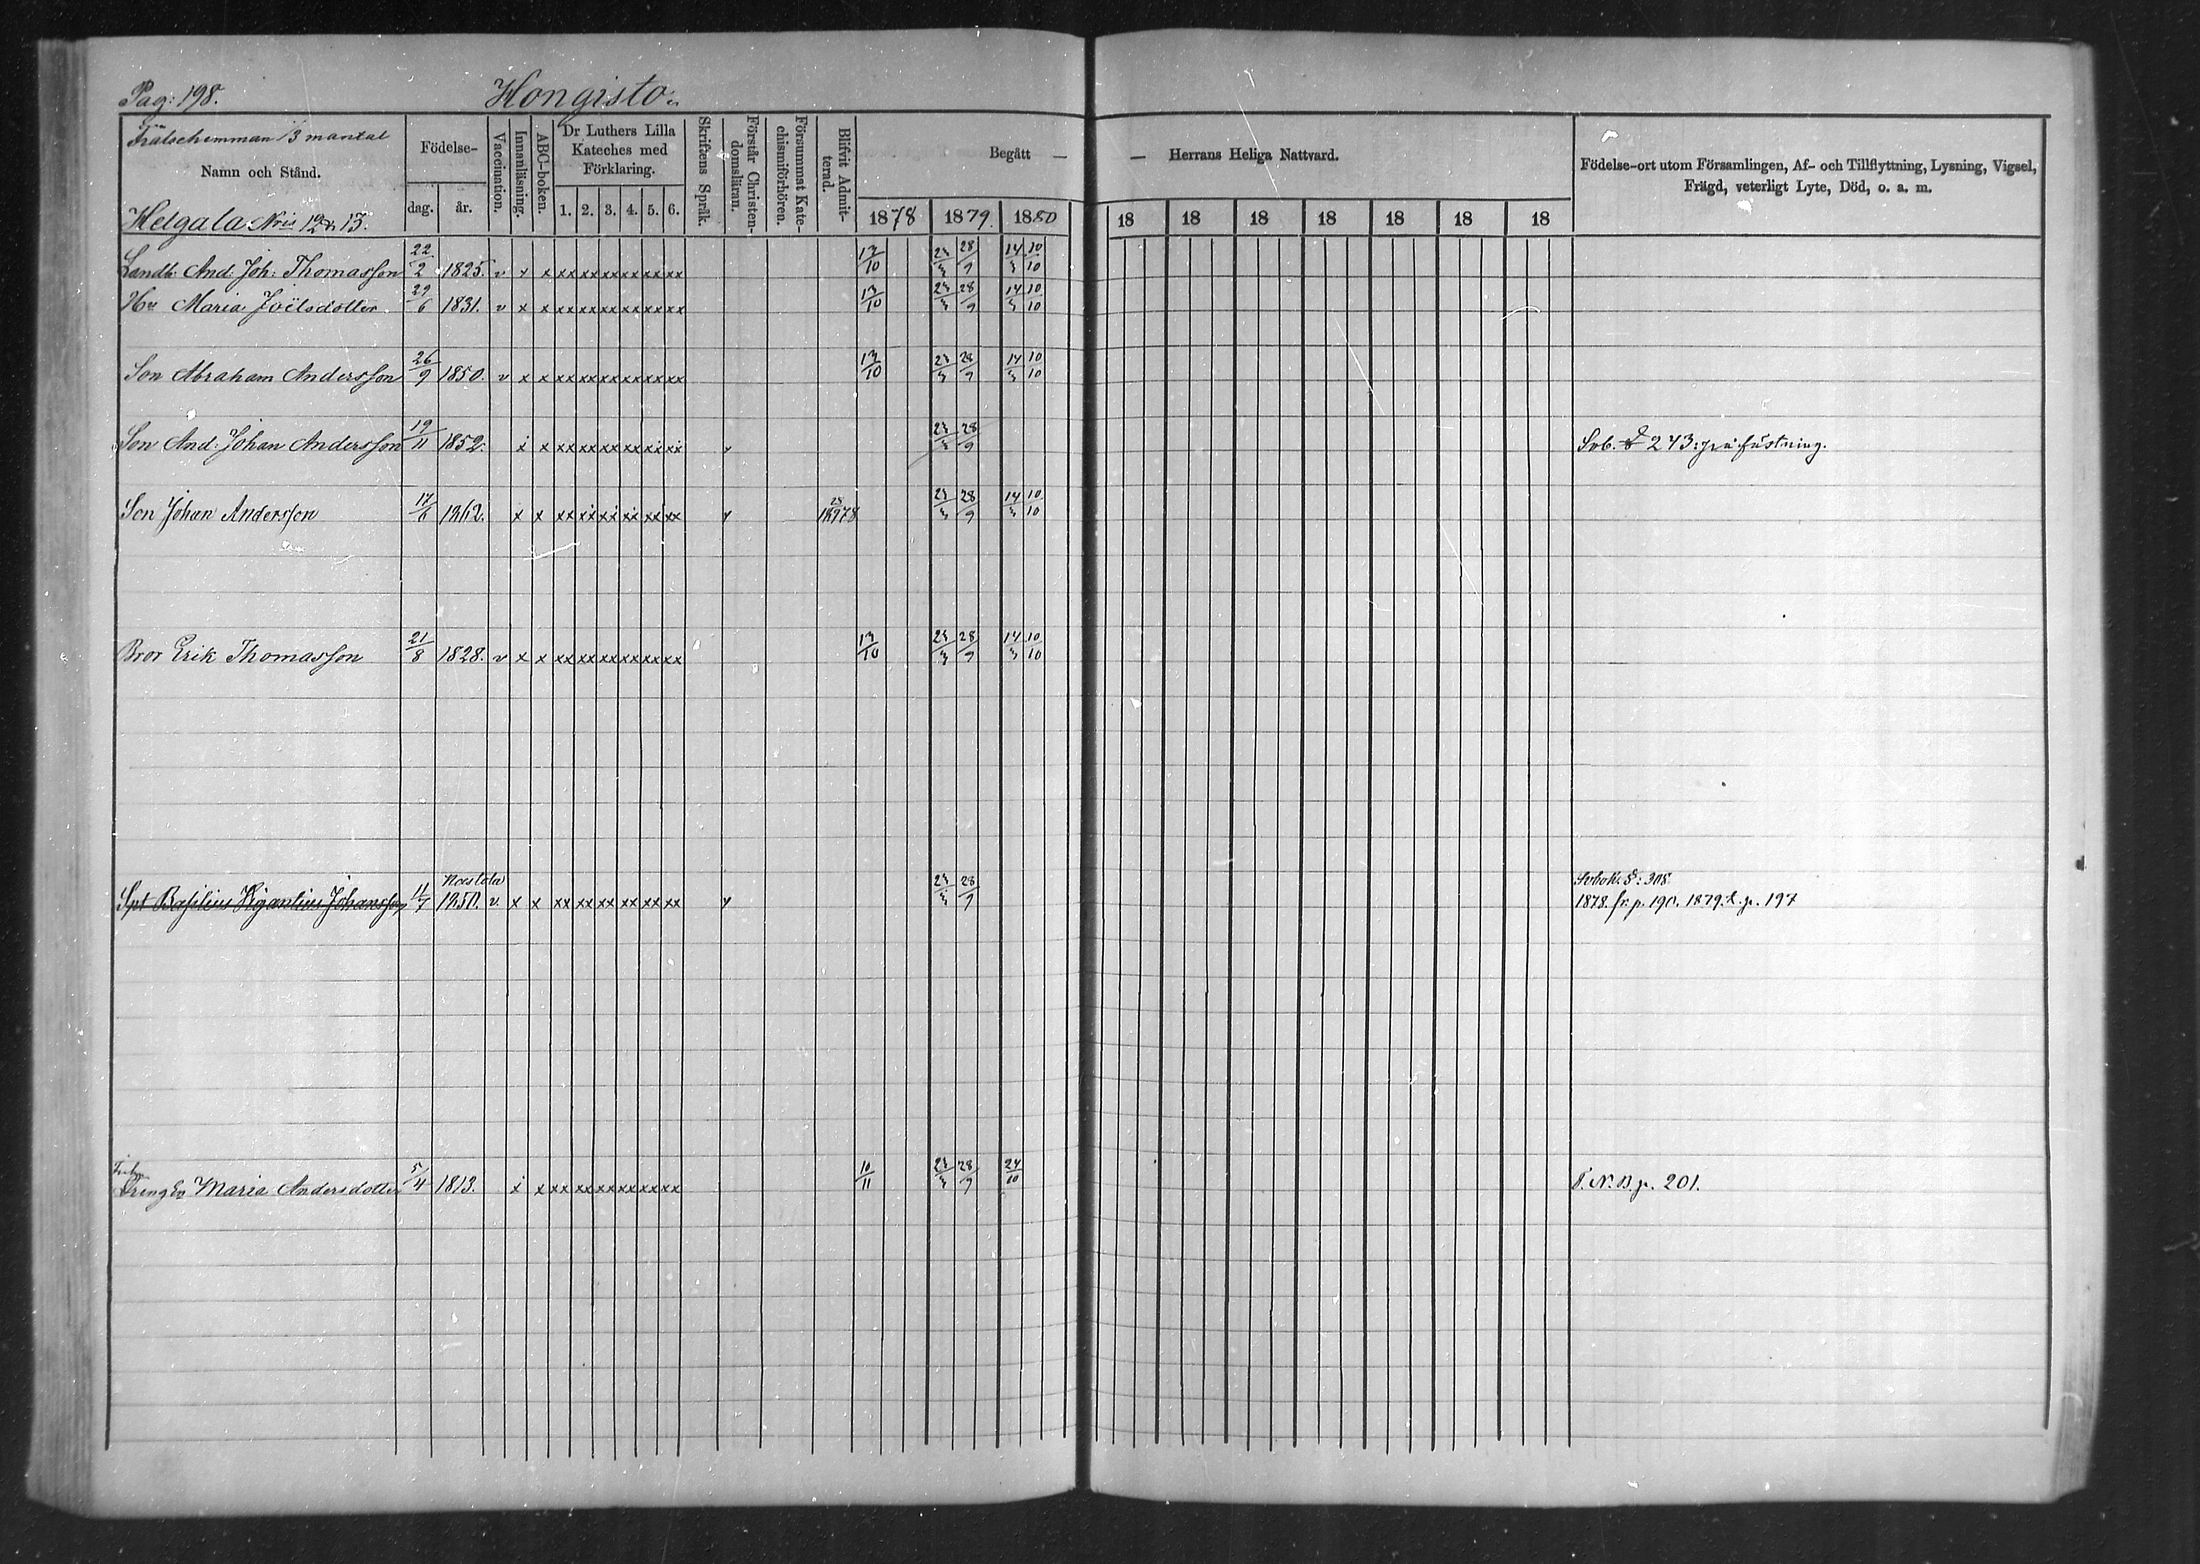 Pag: 198. Hongisto.
Frälsehemman 1/3 mantal
Namn och Stånd.
Helgala Nris 12 & 13.
Födelse-
dag. år.
Vaccination.
Innanläsning.
ABC-boken.
Dr Luthers Lilla
Kateches med
Förklaring.
1. 2. 3. 4. 5. 6.
Skriftens Språk.
Förstår Christen-
domsläran.
Försummat Kate-
chismiförhören.
Blifvit Admit-
terad.
Begått — — Herrans Heliga Nattvard.
1878 1879. 1880 18 18 18 18 18 18 18
Födelse-ort utom Församlingen, Af- och Tillflyttning, Lysning, Vigsel,
Frägd, veterligt Lyte, Död, o. a. m.
Landb: And: Joh: Thomasson 22/2 1825. v x x xx xx xx xx xx xx 13/10 23/3 28/9 14/3 10/10
Hu Maria Joëlsdotter 29/6 1831. v x x xx xx xx xx xx xx 13/10 23/3 28/9 14/3 10/10
Son Abraham Andersson 26/9 1850. v x x xx xx xx xx xx xx 13/10 23/3 28/9 14/3 10/10
Son And: Johan Andersson 19/11 1852. x x xx xx xx xx xx xx v 23/3 28/9 Sob. 243:
Son Johan Andersson 17/6 1862. x x xx xx xx xx xx xx v 23/3 28/9 14/3 10/10
Bror Erik Thomasson 21/8 1828. v x x xx xx xx xx xx xx 13/10 23/3 28/9 14/3 10/10
Nastola
Spt Basilius Johansson 11/7 1850. v. x x xx xx xx xx xx xx v 23/3 28/9
308.
1878. fr. p. 190. 1879. t. p. 197
Maria Andersdotter 5/4 1813. x x xx xx xx xx xx xx 10/11 23/3 28/9 24/10 N. B. p. 201.